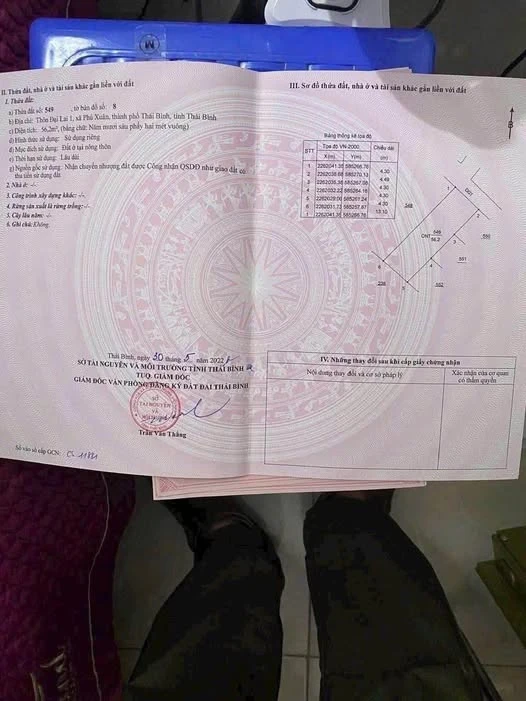 II. Thửa đất, nhà ở và tài sản khác gắn liền với đất
1. Thửa đất:
a) Thửa đất số: 549 , tờ bản đồ số: 8
b) Địa chỉ: Thôn Đại Lai 1, xã Phú Xuân, thành phố Thái Bình, tỉnh Thái Bình
c) Diện tích: 56,2m², (bằng chữ: Năm mươi sáu phẩy hai mét vuông)
d) Hình thức sử dụng: Sử dụng riêng
đ) Mục đích sử dụng: Đất ở tại nông thôn
e) Thời hạn sử dụng: Lâu dài
g) Nguồn gốc sử dụng: Nhận chuyển nhượng đất được Công nhận QSDĐ như giao đất có
thu tiền sử dụng đất
2. Nhà ở: -/-
3. Công trình xây dựng khác: -/-
4. Rừng sản xuất là rừng trồng: -/-
5. Cây lâu năm: -/-
6. Ghi chú: Không.
Thái Bình, ngày 30 tháng 5 năm 2022
SỞ TÀI NGUYÊN VÀ MÔI TRƯỜNG TỈNH THÁI BÌNH
TUQ. GIÁM ĐỐC
GIÁM ĐỐC VĂN PHÒNG ĐĂNG KÝ ĐẤT ĐAI THÁI BÌNH
SỞ
TÀI NGUYÊN
VÀ
MÔI TRƯỜNG
Trần Văn Thắng
Số vào sổ cấp GCN:
III. Sơ đồ thửa đất, nhà ở và tài sản khác gắn liền với đất
Bảng thống kê tọa độ
STT Tọa độ VN-2000 Chiều dài
X(m) Y(m) (m)
1
2
3
4
5
6
1
4.30
4.49
4.30
4.20
4.30
13.10
B
1
2
3
4
5
6
548
ONT 549
56.2
550
551
552
236
IV. Những thay đổi sau khi cấp giấy chứng nhận
Nội dung thay đổi và cơ sở pháp lý
Xác nhận của cơ quan
có thẩm quyền